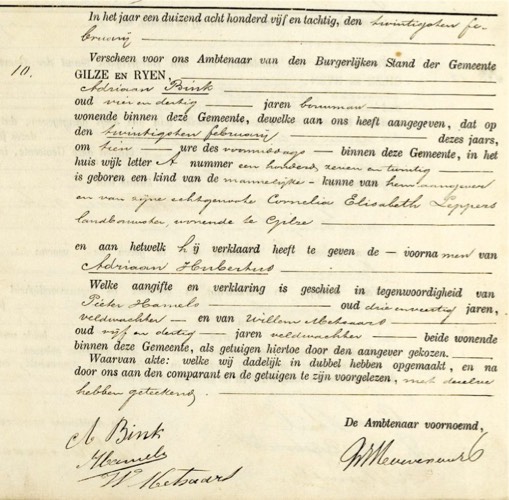 In het jaar een duizend acht honderd vijf en tachtig, den twintigsten fe-
bruarij
10.
Verscheen voor ons Ambtenaar van den Burgerlijken Stand der Gemeente
GILZE EN RYEN,
Adriaan Bink
oud vier en dertig jaren bouwman
wonende binnen deze Gemeente, dewelke aan ons heeft aangegeven, dat op
den twintigsten februarij dezes jaars,
om tien ure des voormiddags binnen deze Gemeente, in het
huis wijk letter A nummer een honderd zeven en twintig
is geboren een kind van de mannelijke kunne van hem aangever
en van zijne echtgenoote Cornelia Elisabeth Leppers
landbouwster, wonende te Gilze
en aan hetwelk hij verklaard heeft te geven de voornamen van
Adriaan Hubertus
Welke aangifte en verklaring is geschied in tegenwoordigheid van
Pieter Hamels oud drie en veertig jaren,
veldwachter en van Willem Metsaars
oud vijf en dertig jaren veldwachter beide wonende
binnen deze Gemeente, als getuigen hiertoe door den aangever gekozen.
Waarvan akte: welke wij dadelijk in dubbel hebben opgemaakt, en na
door ons aan den comparant en de getuigen te zijn voorgelezen, met dezelve
hebben geteekend.
De Ambtenaar voornoemd,
A Bink
Hamels
W Metsaars